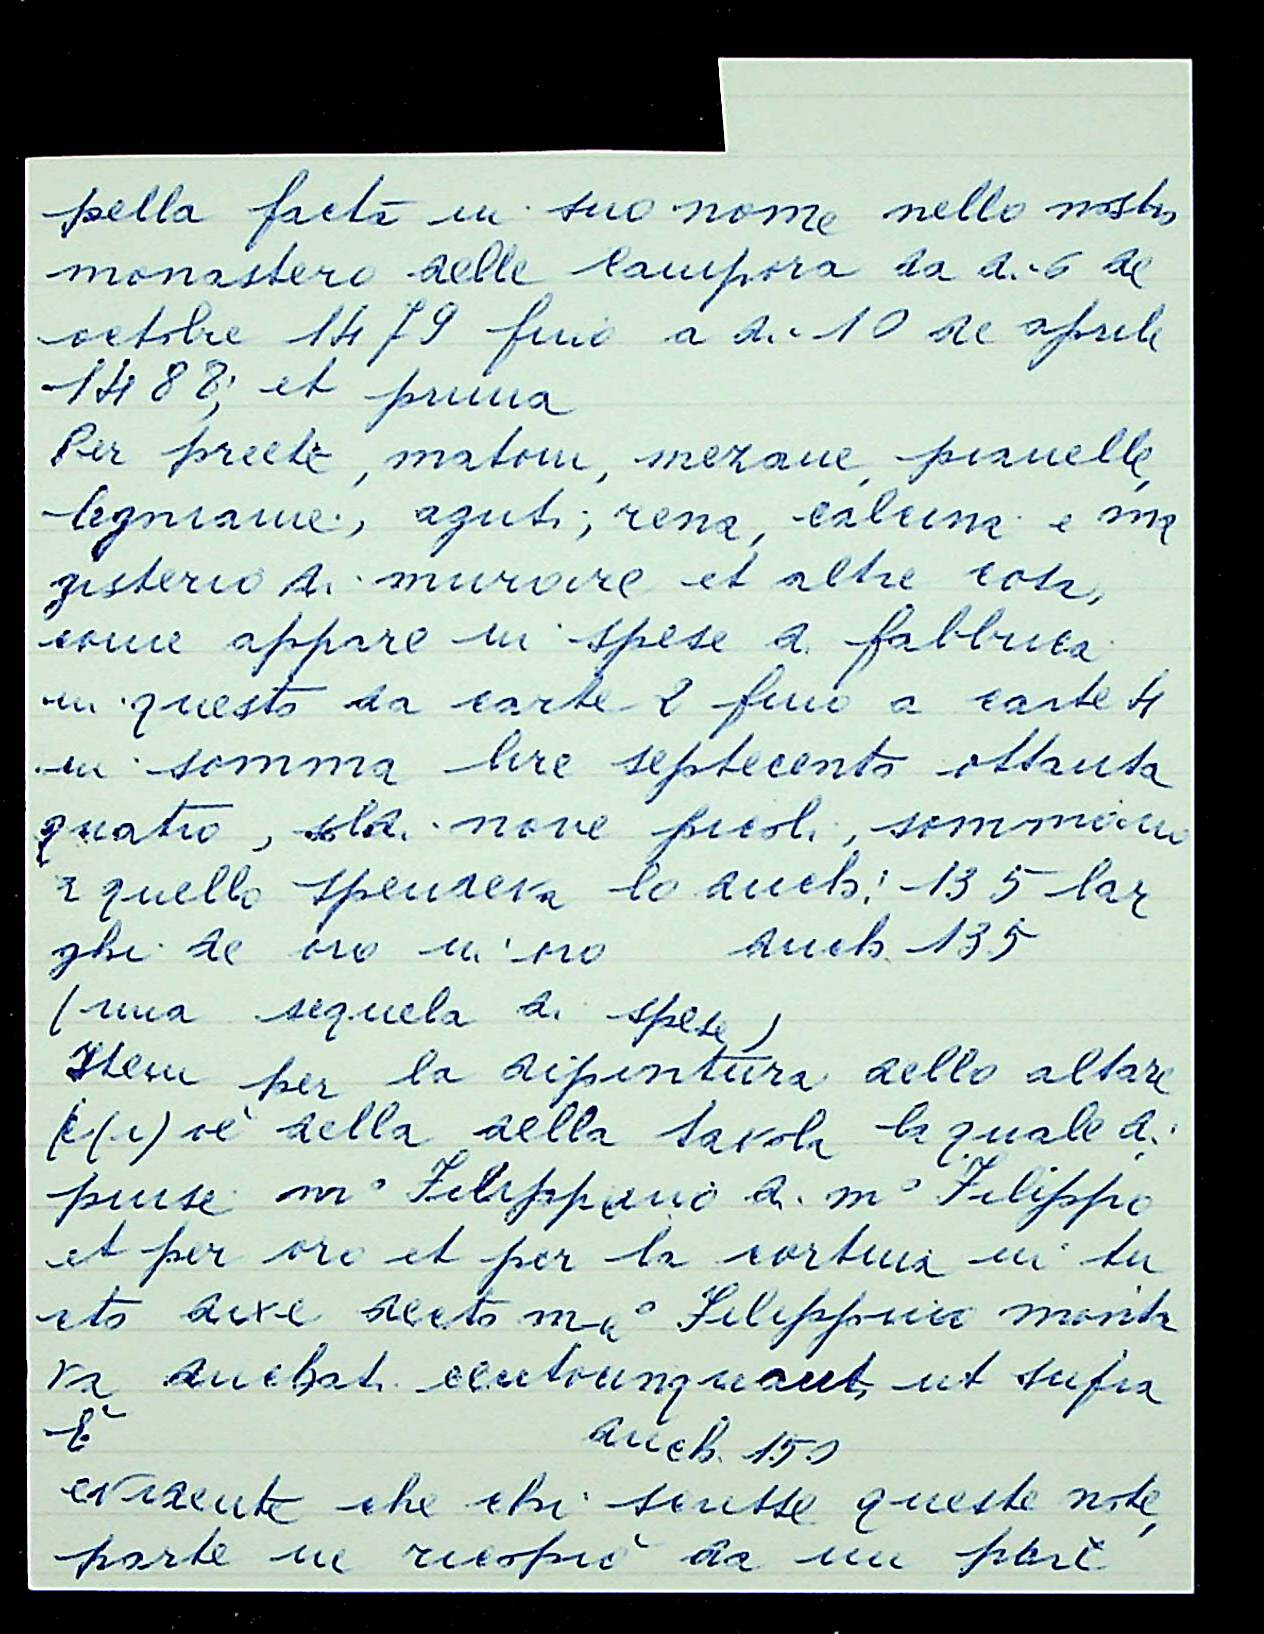 pella facta in suo nome nello nostro
monastero delle Campora da di 6 de
octobre 1479 fino a di 10 de aprile
1488; et prima
Per preete, matoni, mezane, pianelle,
legniame, aguti, rena, calcina e ma
gisterio di murare et altre cose,
come appare in spese di fabbrica
in questo da carte 2 fino a carte 4
in somma lire septecento ottanta
quatro, soldi nove picoli, sommano
a quello spendeva lo duch: 135 lar
ghi de oro in oro duch. 135
(una sequela di spese)
Item per la dipintura dello altare
c(i)oè della della tavola la quale di
pinse m° Filippino di m° Filippo
et per oro et per la cortina in tu
cto dixe decto m° Filippino monta
va duchati centocinquanta ut supra
È duch. 150
evidente che chi scrisse queste note,
parte ne ricopiò da un